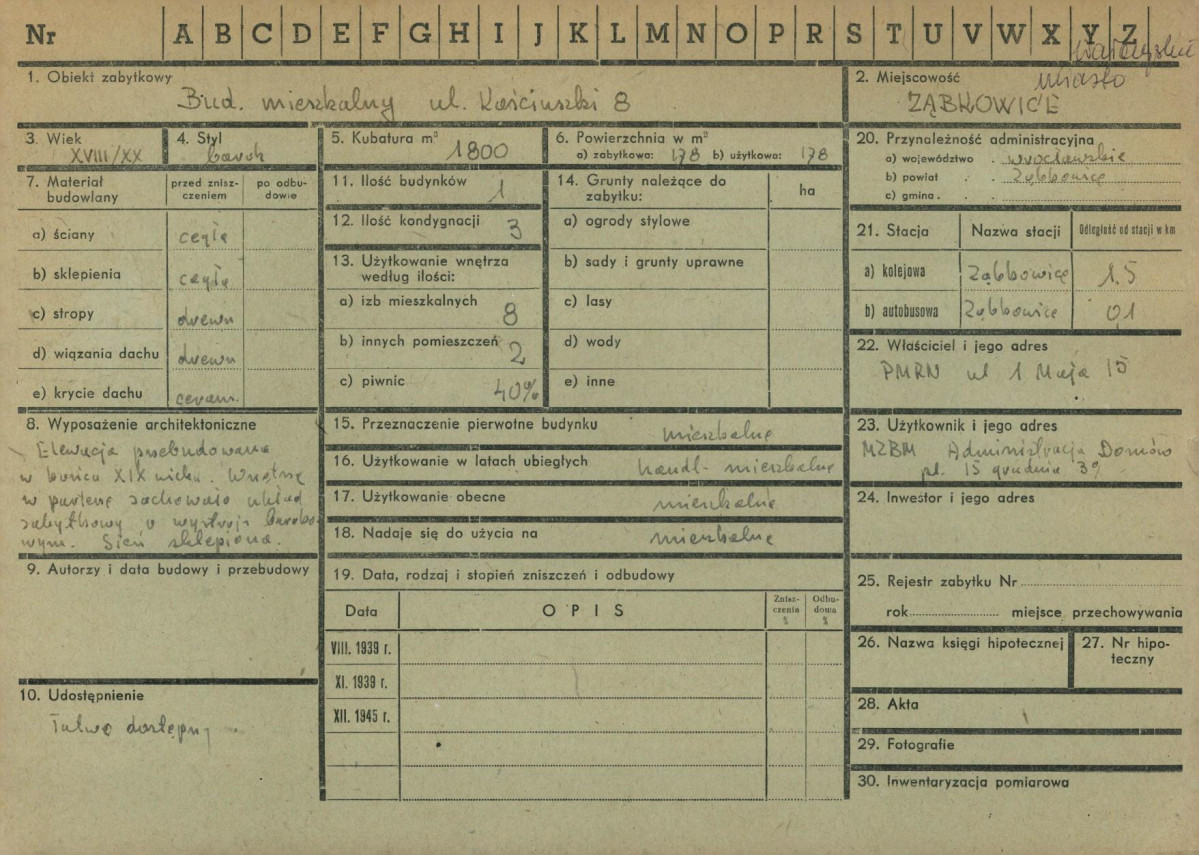 Nr A B C D E F G H I J K L M N O P R S T U V W X Y Z
1. Obiekt zabytkowy
Bud. mieszkalny ul. Kościuszki 8
2. Miejscowość
miasto
ZĄBKOWICE
3. Wiek
XVIII/XX
4. Styl
barok
5. Kubatura m³
1800
6. Powierzchnia w m²
a) zabytkowa: 178 b) użytkowa: 178
7. Materiał budowlany
przed zniszczeniem
po odbudowie
a) ściany cegła
b) sklepienia cegła
c) stropy drewn
d) wiązania dachu drewn
e) krycie dachu ceram.
8. Wyposażenie architektoniczne
Elewacja przebudowana
w końcu XIX wieku. Wnętrze
w parterze zachowało układ
zabytkowy o wystroju baroko-
wym. Sień sklepiona.
9. Autorzy i data budowy i przebudowy
10. Udostępnienie
Łatwo dostępny
11. Ilość budynków 1
12. Ilość kondygnacji 3
13. Użytkowanie wnętrza
według ilości:
a) izb mieszkalnych 8
b) innych pomieszczeń 2
c) piwnic 40%
14. Grunty należące do
zabytku:
ha
a) ogrody stylowe
b) sady i grunty uprawne
c) lasy
d) wody
e) inne
15. Przeznaczenie pierwotne budynku mieszkalne
16. Użytkowanie w latach ubiegłych handl- mieszkalne
17. Użytkowanie obecne mieszkalne
18. Nadaje się do użycia na mieszkalne
19. Data, rodzaj i stopień zniszczeń i odbudowy
Data
OPIS
Znisz-
czenia
%
Odbu-
dowa
%
VIII. 1939 r.
XI. 1939 r.
XII. 1945 r.
20. Przynależność administracyjna
a) województwo wrocławskie
b) powiat Ząbkowice
c) gmina
21. Stacja
Nazwa stacji
Odległość od stacji w km
a) kolejowa Ząbkowice 1.5
b) autobusowa Ząbkowice 0,1
22. Właściciel i jego adres
PMRN ul 1 Maja 15
23. Użytkownik i jego adres
MZBM Administracja Domów
pl. 15 grudnia 39
24. Inwestor i jego adres
25. Rejestr zabytku Nr
rok miejsce przechowywania
26. Nazwa księgi hipotecznej
27. Nr hipo-
teczny
28. Akta
29. Fotografie
30. Inwentaryzacja pomiarowa